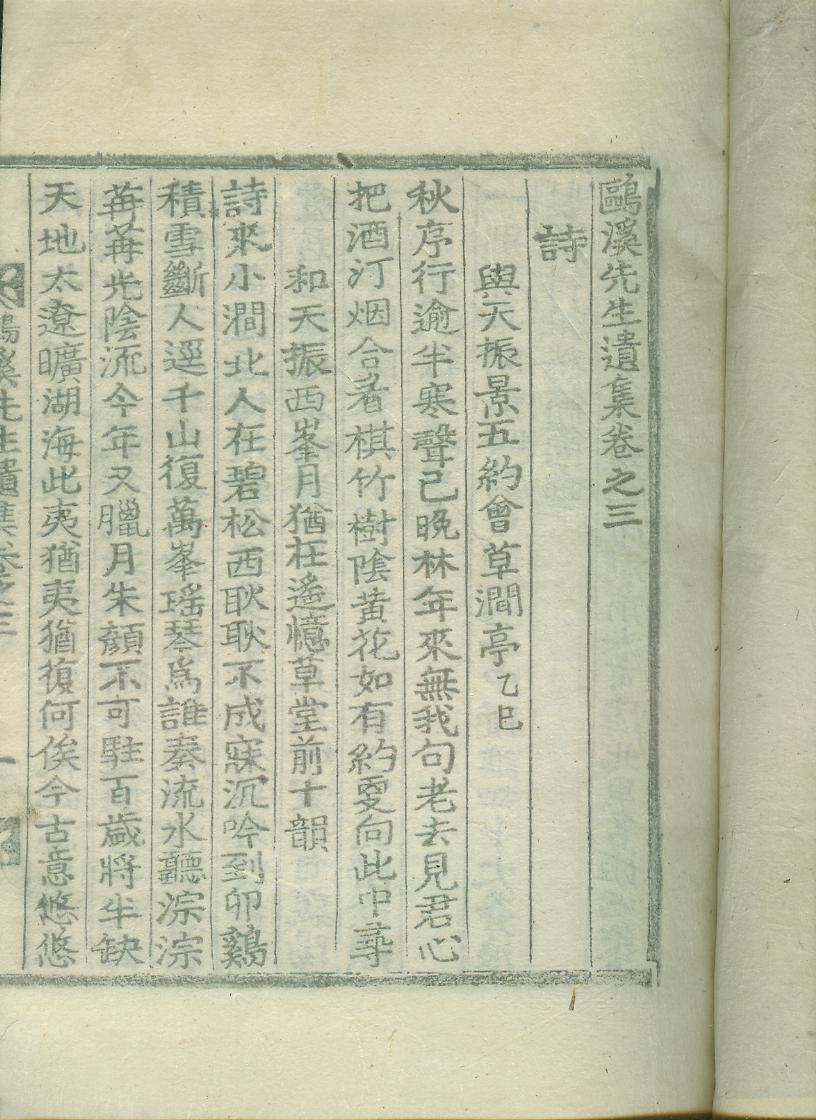 鷗溪先生遺集卷之三
詩
與天振景五約會草澗亭乙巳
秋序行逾半寒聲已晚林年來無我句老去見君心
把酒汀烟合看棋竹樹陰黃花如有約更向此中尋
和天振西峯月猶在遙憶草堂前十韻
詩來小澗北人在碧松西耿耿不成寐沉吟到卯鷄
積雪斷人逕千山復萬峯瑤琴爲誰奏流水聽淙淙
苒苒光陰流今年又臘月朱顔不可駐百歲將半缺
天地太遼曠湖海此夷猶夷猶復何俟今古意悠悠
溪先生遺集卷之三 一